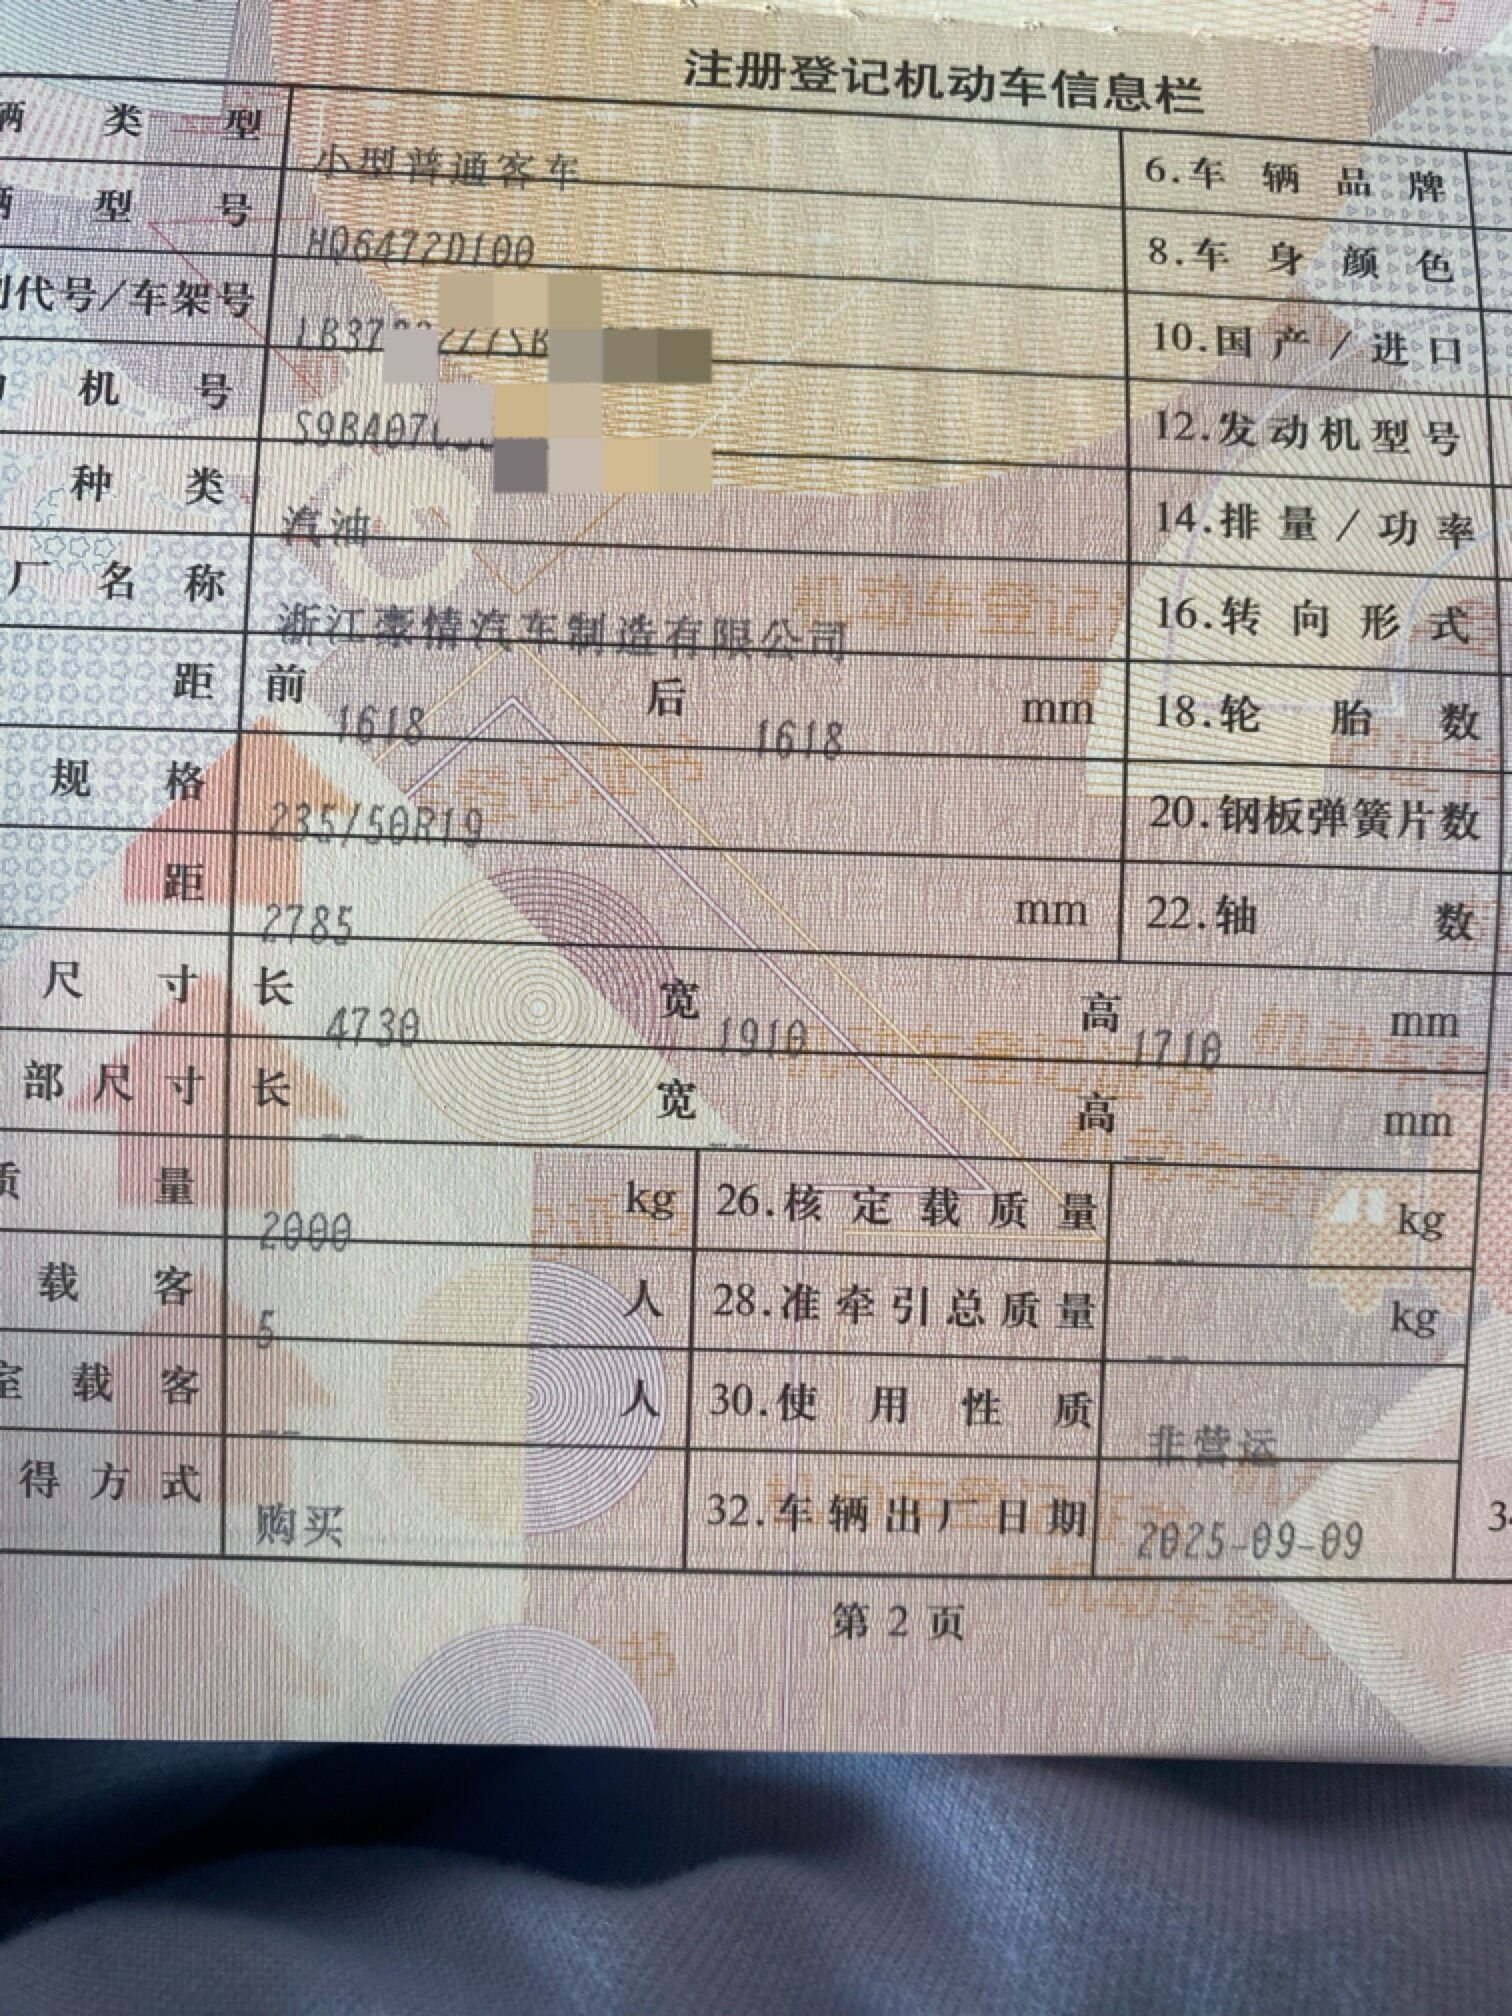 注册登记机动车信息栏
辆类型 小型普通客车 6.车辆品牌
辆型号 HQ6472D100 8.车身颜色
别代号/车架号 LB37 10.国产/进口
机号 S9BA07 12.发动机型号
种类 汽油 14.排量/功率
厂名称 浙江豪情汽车制造有限公司 16.转向形式
距 前 1618 后 1618 mm 18.轮胎数
规格 235/50R19 20.钢板弹簧片数
距 2785 mm 22.轴数
尺寸 长 4730 宽 1910 高 1710 mm
部尺寸 长 -- 宽 -- 高 -- mm
质量 2000 kg 26.核定载质量 -- kg
载客 5 人 28.准牵引总质量 -- kg
室载客 -- 人 30.使用性质 非营运
得方式 购买 32.车辆出厂日期 2025-09-09
第2页